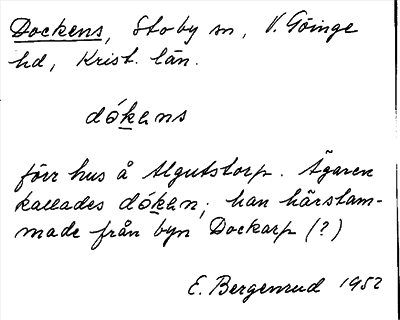 Dockens, Stoby sn, V. Göinge
hd, Krist. län.
dókens
förr hus å Algutstorp. Ägaren
kallades dóken; han härstam-
made från byn Dockarp (?)
E. Bergenrud 1952